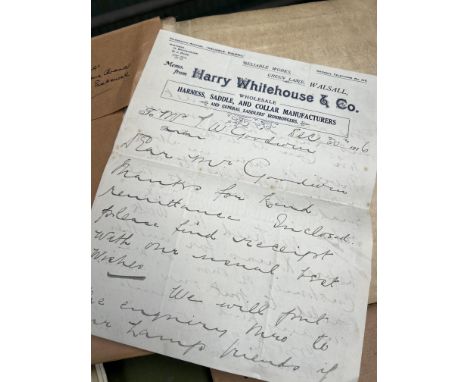 Memo.
from
RELIABLE WORKS,
GREEN LANE, WALSALL,
Harry Whitehouse & Co.
WHOLESALE
HARNESS, SADDLE, AND COLLAR MANUFACTURERS
AND GENERAL SADDLERS' IRONMONGERS.
Dec 20th
To Mr J W Goodwin
Dear Mr Goodwin
thanks for kind
remittance Enclosed.
please find receipt
with our usual best
wishes
We will put
enquiry Mro to
Lamp friends if